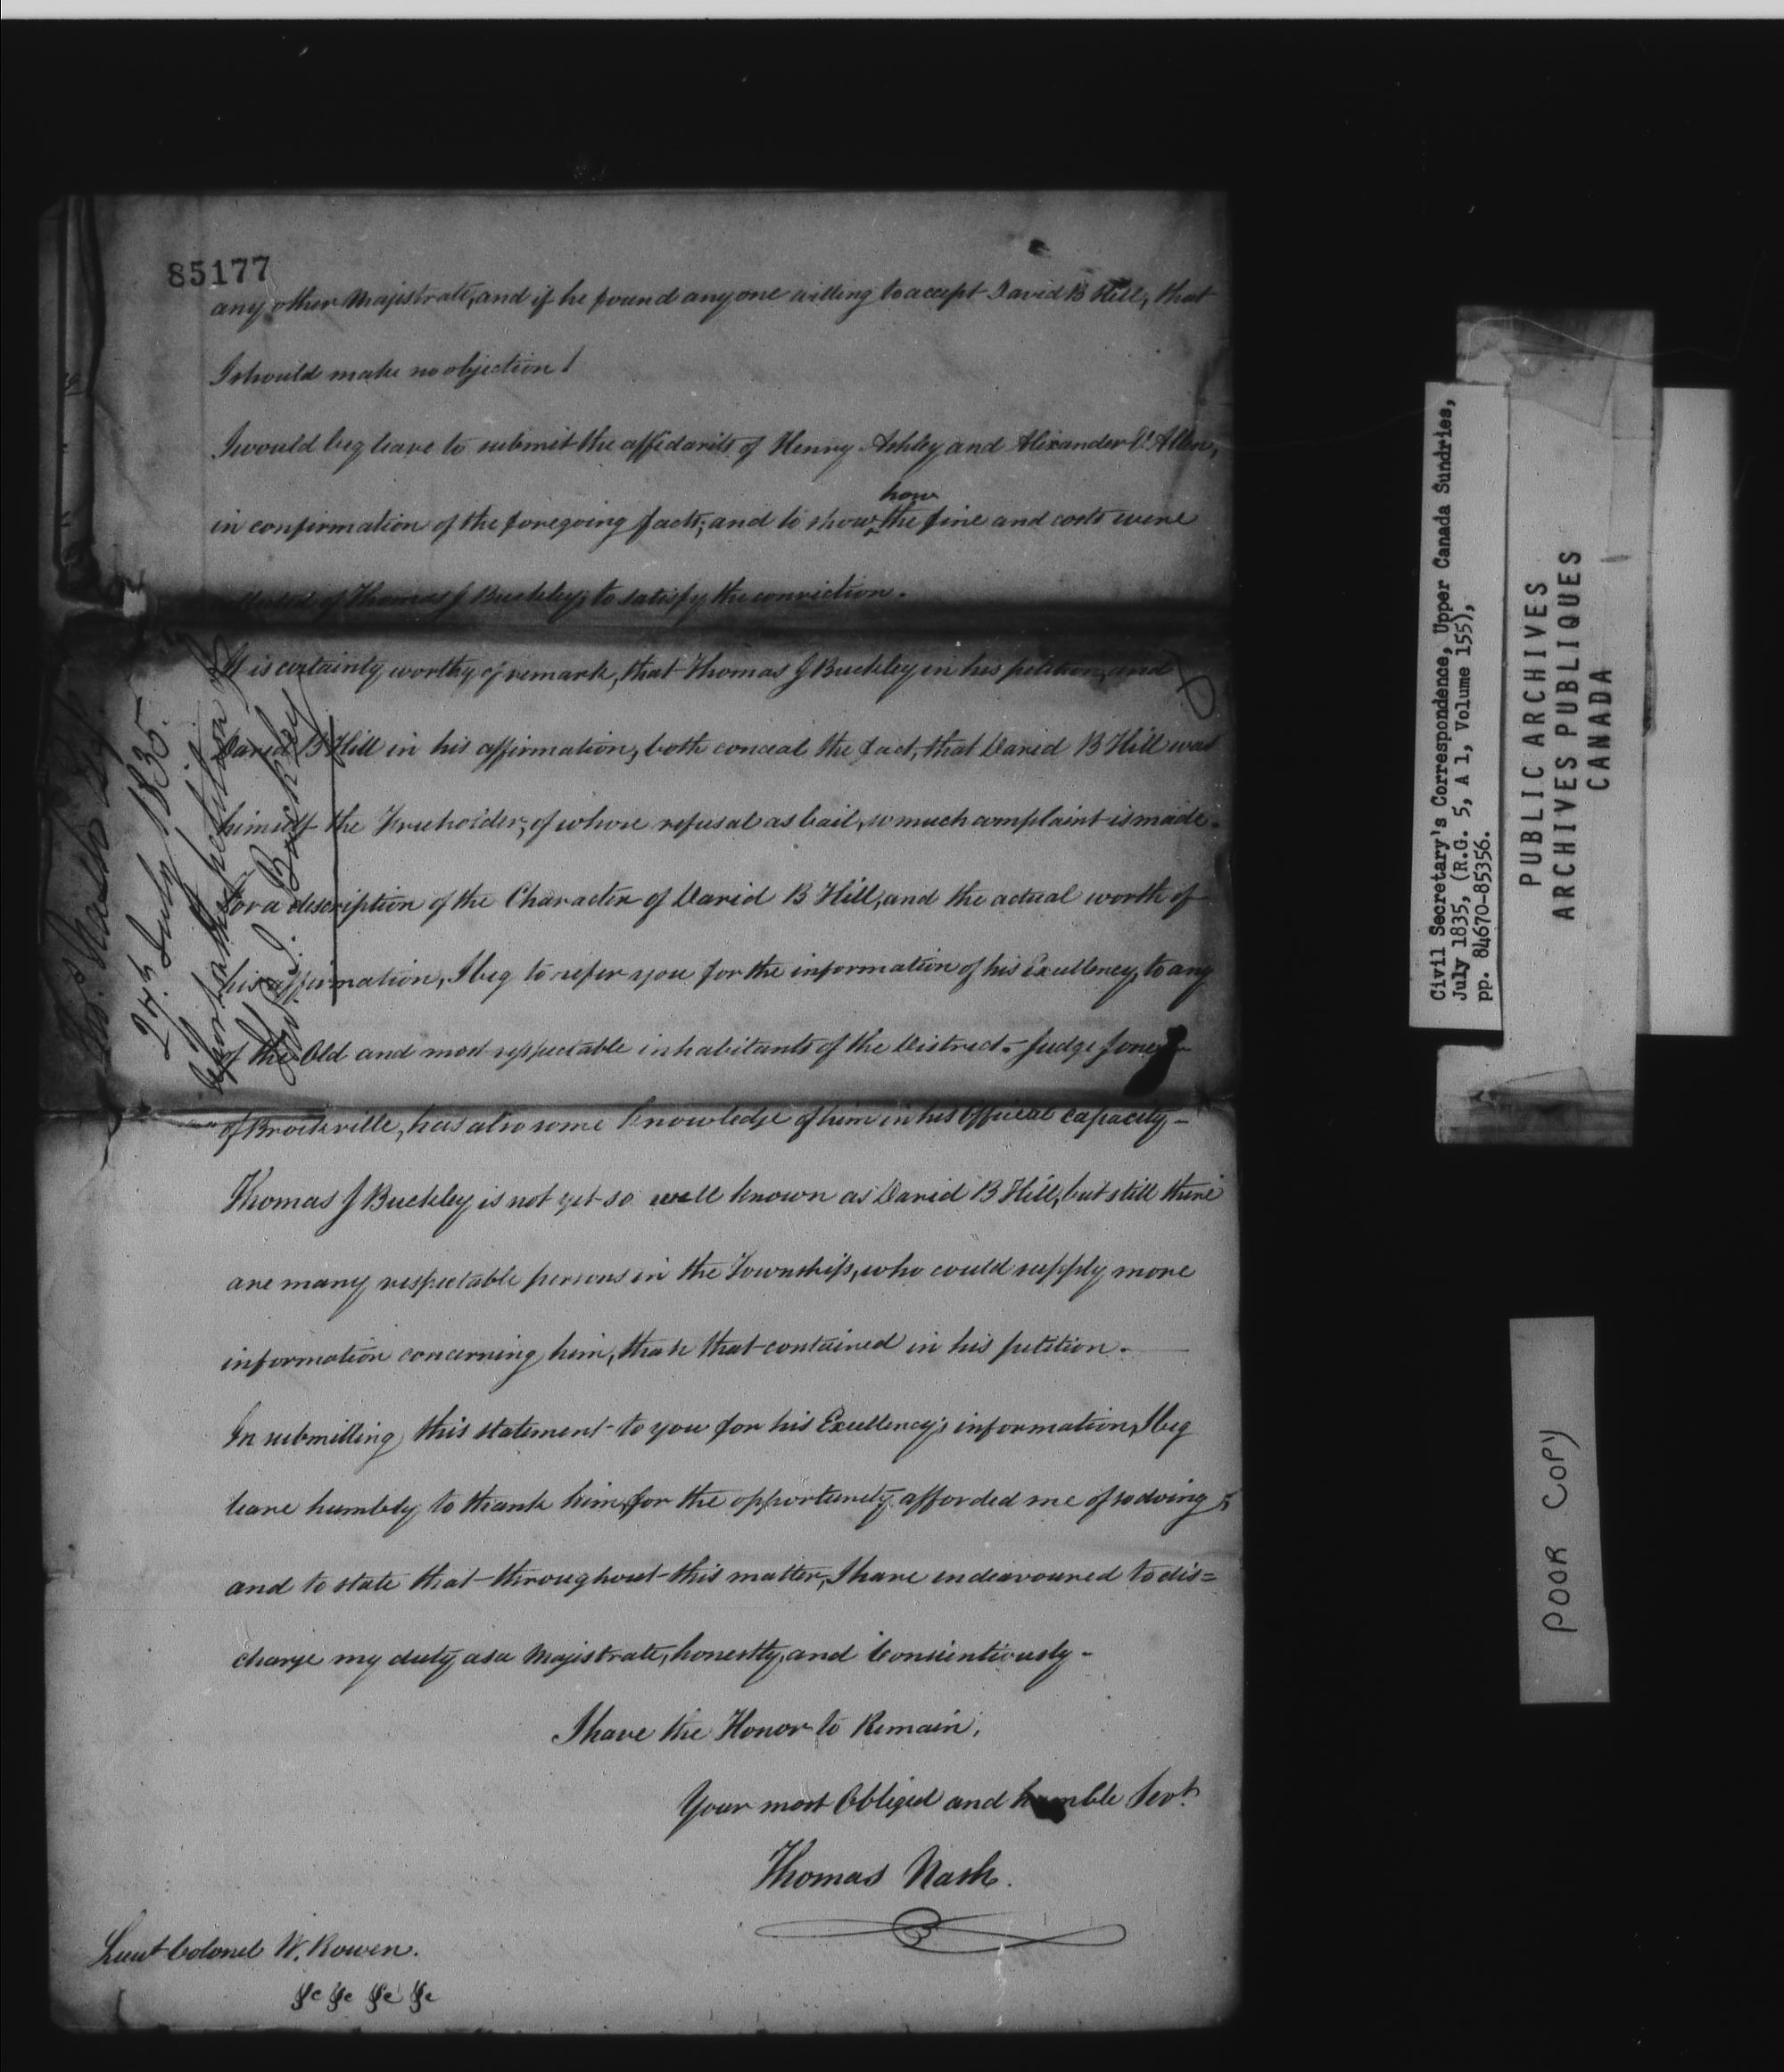 85177
any other Majistrate, and if he found anyone willing to accept David B Hill, that
I should make no objection!
I would beg leave to submit the affidavits of Henry Ashley and Alexander V. Allen,
how
in confirmation of the foregoing facts; and to show the fine and costs were
of Thomas J Buckley, to satisfy the conviction.
It is certainly worthy of remark, that Thomas J Buckley in his petition, and
David B Hill in his affirmation, both conceal the fact, that David B Hill was
himself the Freeholder, of whose refusal as bail, so much complaint is made.
For a description of the Character of David B Hill, and the actual worth of
his affirmation, I beg to refer you for the information of his Excellency, to any
of the Old and most respectable inhabitants of the District. Judge Jones
of Brockville, has also some knowledge of him in his official capacity -
Thomas J Buckley is not yet so well known as David B Hill, but still there
are many respectable persons in the Township, who could supply more
information concerning him, than that contained in his petition.
In submitting this statement to you for his Excellency's information, I beg
leave humbly to thank him, for the opportunity afforded me of so doing;
and to state that throughout this matter, I have endeavoured to dis=
charge my duty as a Majistrate, honestly, and Consientiously -
I have the Honor to Remain,
Your most Obliged and humble Servt.
Thomas Nash.
Lieut Colonel W. Rowen.
&c &c &c &c
Thos. Nash
27th July 1835.
Report on the petition of
Thos. J. Buckley
Civil Secretary's Correspondence, Upper Canada Sundries,
July 1835, (R.G. 5, A 1, Volume 155),
pp. 84670-85356.
PUBLIC ARCHIVES
ARCHIVES PUBLIQUES
CANADA
POOR COPY